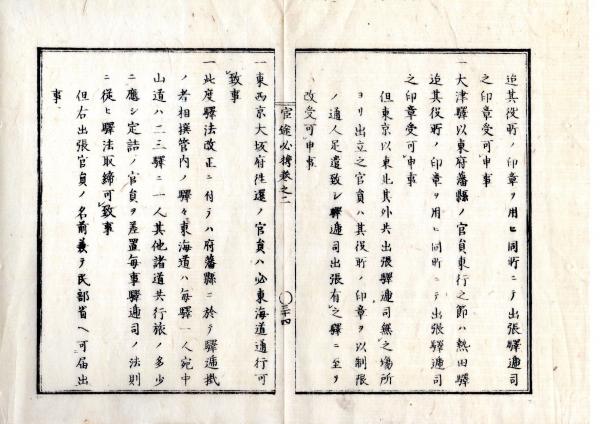 追其役所ノ印章ヲ用ヒ同所ニテ出張驛遞司
之印章受可申事
一大津驛以東府藩縣ノ官員東行之節ハ熱田驛
追其役所ノ印章ヲ用ヒ同所ニテ出張驛遞司
之印章受可申事
但東京以東北其外共出張驛遞司無之場所
ヨリ出立之官員ハ其役所ノ印章ヲ以制限
ノ通人足遣致シ驛遞司出張有之驛ニ至リ
改受可申事
官途必携巻之二
三十四
一東西京大坂府往還ノ官員ハ必東海道通行可
致事
一此度驛法改正ニ付テハ府藩縣ニ於テ驛遞掛
ノ者相撰管内ノ驛々東海道ハ毎驛一人宛中
山道ハ二三驛ニ一人其他諸道共行旅ノ多少
ニ應シ定詰ノ官員ヲ差置毎事驛遞司ノ法則
ニ從ヒ驛法取締可致事
但右出張官員ノ名前義ヲ民部省ヘ可届出
事